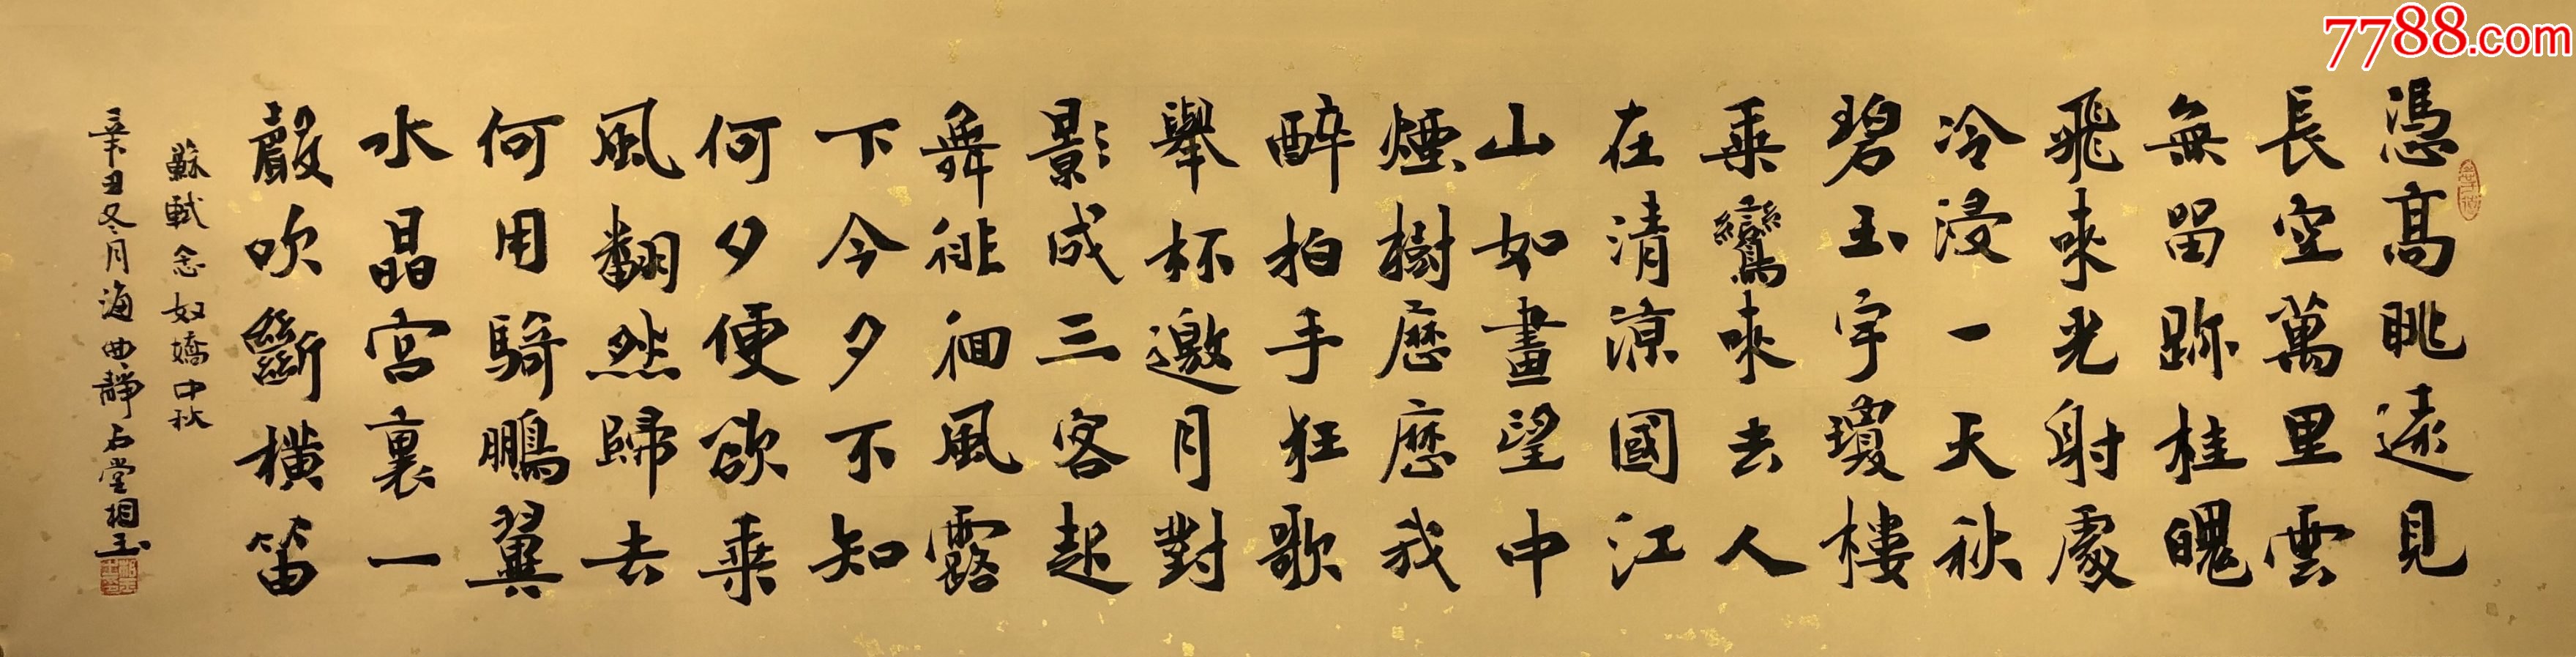 憑高眺遠見
長空萬里雲
無留跡桂魄
飛來光射處
冷浸一天秋
碧玉宇瓊樓
乘鸞來去人
在清涼國江
山如畫望中
煙樹歷歷我
醉拍手狂歌
舉杯邀月對
影成三客起
舞徘徊風露
下今夕不知
何夕便欲乘
風翻然歸去
何用騎鵬翼
水晶宮裏一
聲吹斷橫笛
蘇軾念奴嬌中秋
辛丑冬月海曲靜石堂相玉
7788.com